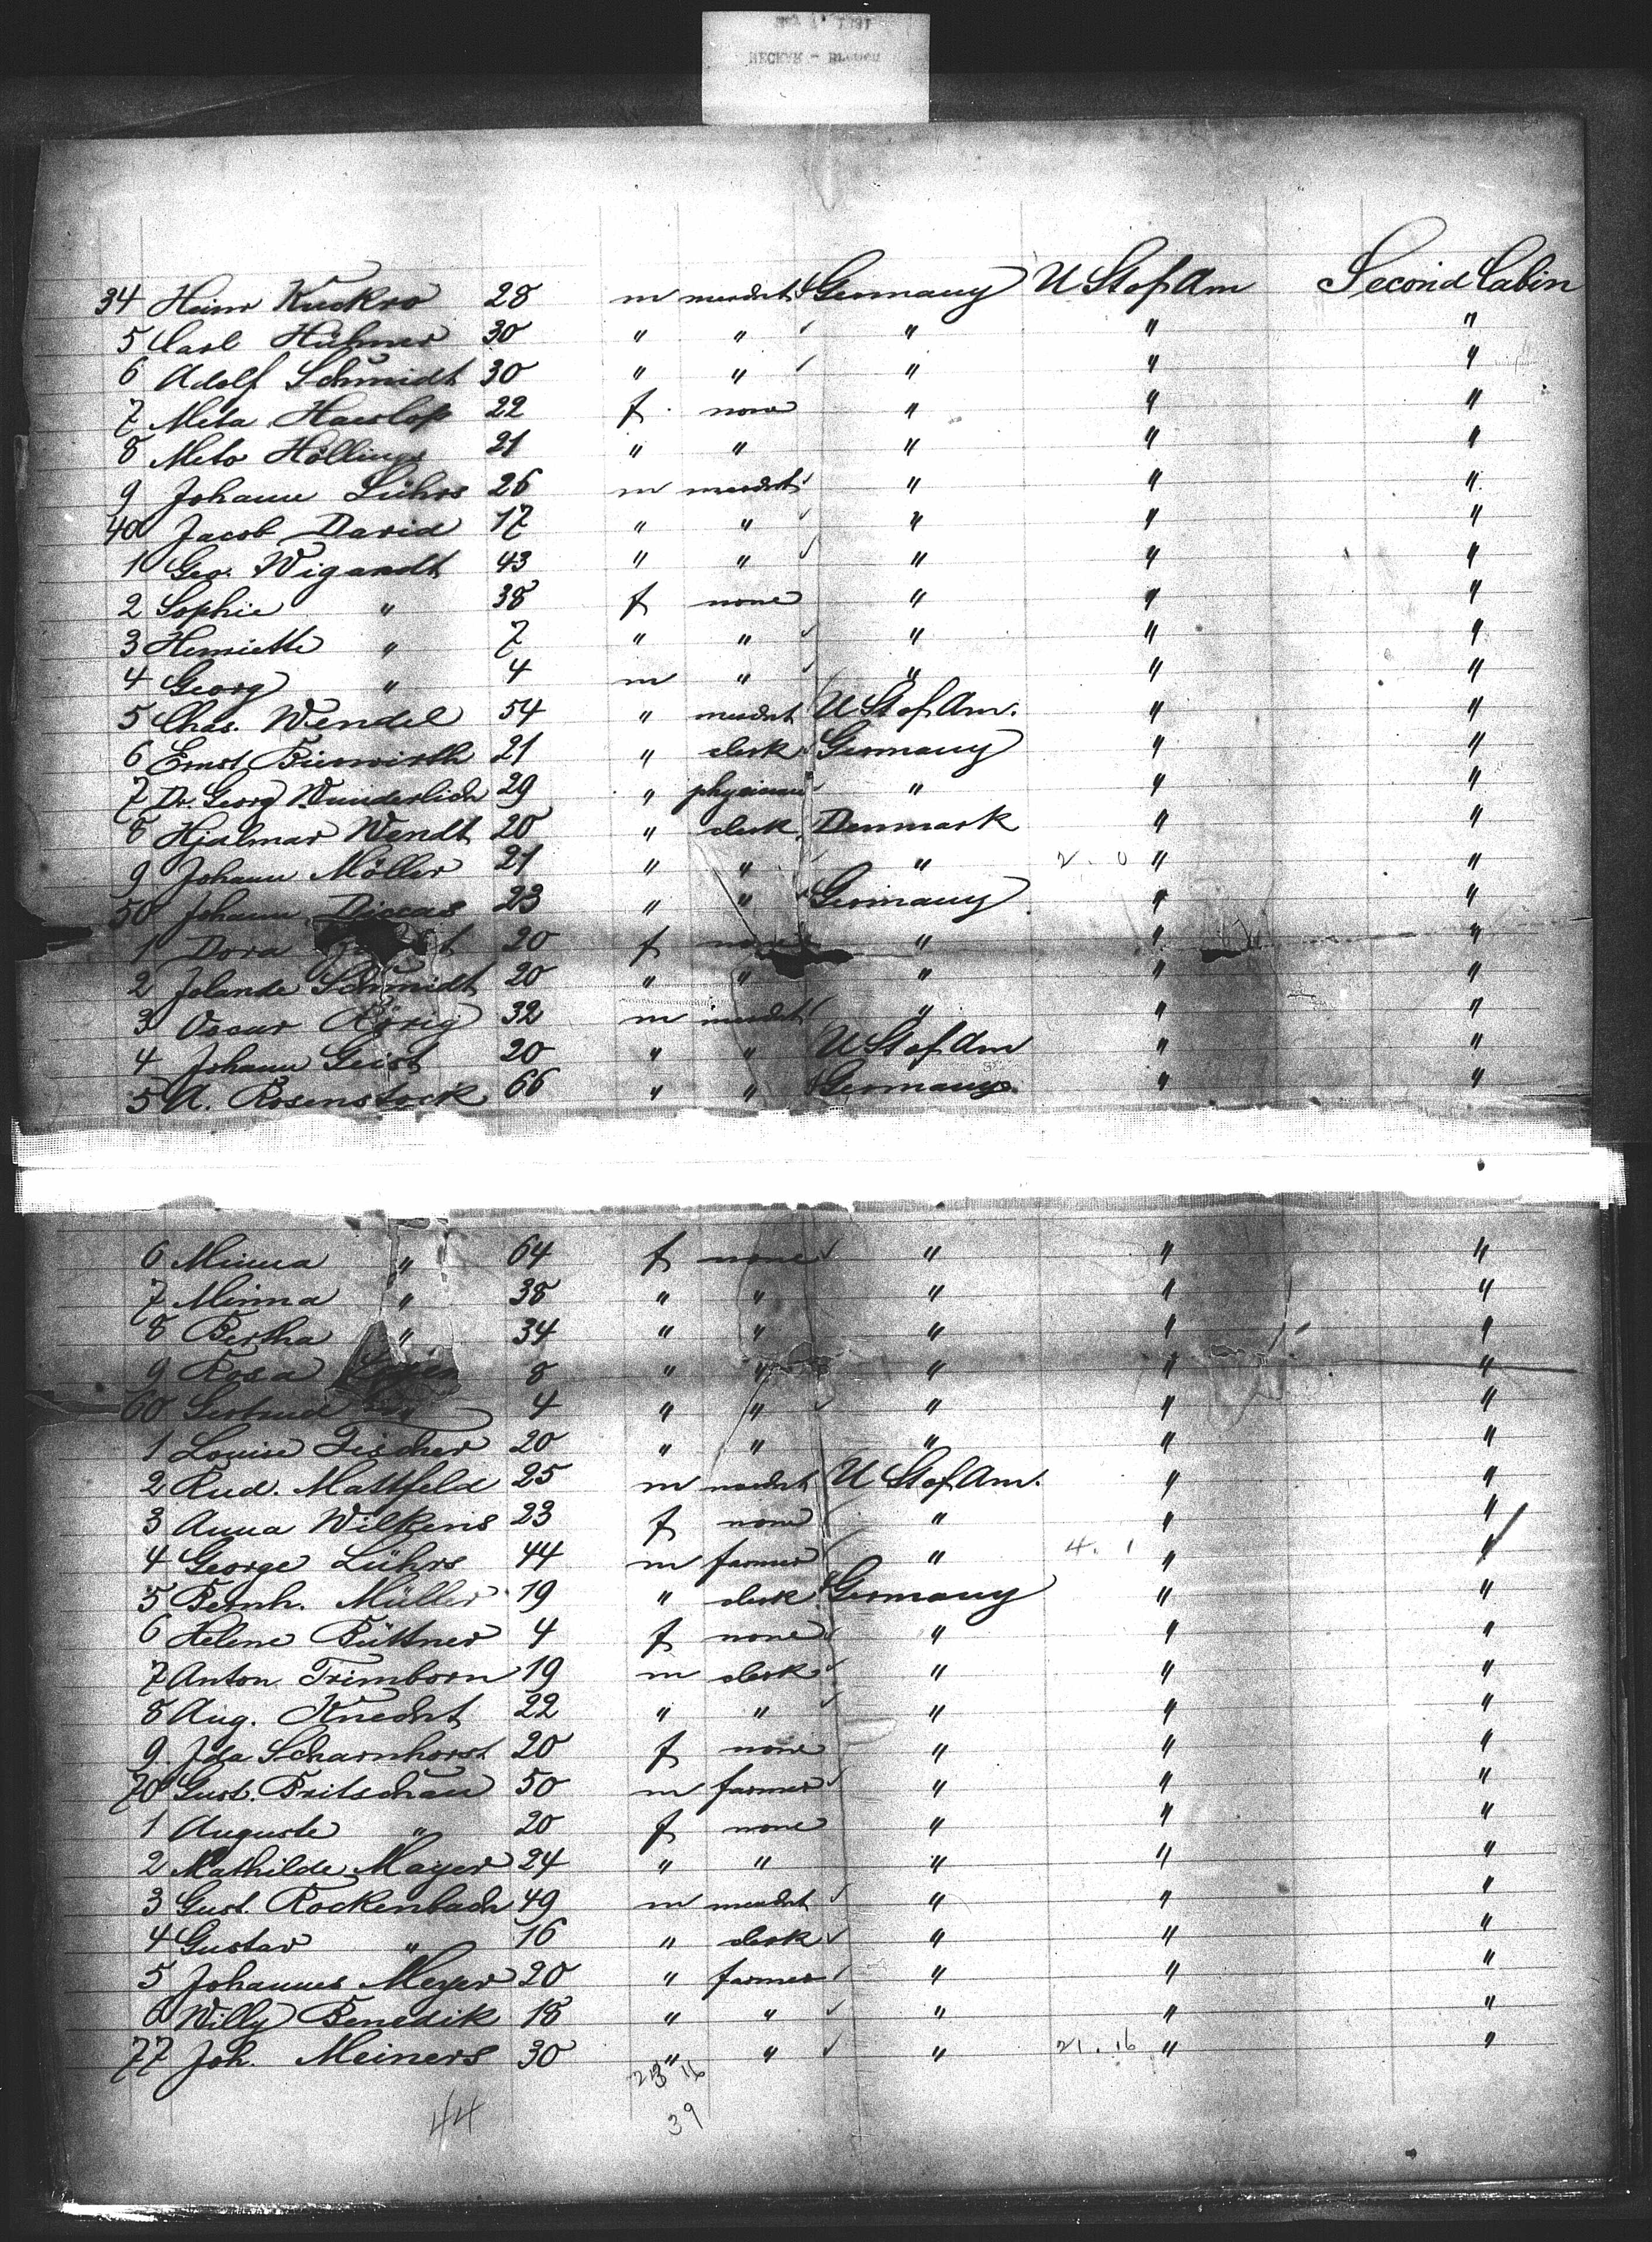 34 Heinr Kuckro 28 m mercht Germany U St of Am Second Cabin
5 Carl Hübner 30 " " " " "
6 Adolf Schmidt 30 " " " " "
7 Meta Haeslop 22 f none " " "
8 Meta Höllings 21 " " " " "
9 Johann Lührs 26 m mercht " " "
40 Jacob David 17 " " " " "
1 Geo. Wigandt 43 " " " " "
2 Sophie " 38 f none " " "
3 Henriette " 7 " " " " "
4 Georg " 4 m " " " "
5 Chas. Wendel 54 " mercht U St of Am. " "
6 Ernst Bierwirth 21 " clerk Germany " "
7 Dr. Georg Wunderlich 29 " physician " " "
8 Hjalmar Wendt 20 " clerk Denmark " "
9 Johann Möller 21 " " " 2. 0 " "
50 Johann 23 " " Germany " "
1 Dora 20 f none " " "
2 Jolande Schmidt 20 " " " " "
3 Oscar Rörig 32 m mercht " " "
4 Johann Geist 20 " " U St of Am " "
5 A. Rosenstock 66 " " Germany " "
6 Minna " 64 f none " " "
7 Minna " 38 " " " " "
8 Bertha " 34 " " " " "
9 Rosa 8 " " " " "
60 Gertrud " 4 " " " " "
1 Louise Fischer 20 " " " " "
2 Rud. Mattfeld 25 m mercht U St of Am. " "
3 Anna Wilkens 23 f none " " "
4 George Lührs 44 m farmer " 4. 1 " "
5 Bernh. Müller 19 " clerk Germany " "
6 Helene Büttner 4 f none " " "
7 Anton Trimborn 19 m clerk " " "
8 Aug. Knecht 22 " " " " "
9 Ida Scharnhorst 20 f none " " "
70 Gust. Britschau 50 m farmer " " "
1 Auguste " 20 f none " " "
2 Mathilde Mayer 24 " " " " "
3 Gust. Rockenbach 49 m mercht " " "
4 Gustav " 16 " clerk " " "
5 Johannes Meyer 20 " farmer " " "
6 Willy Benedik 18 " " " " "
77 Joh. Meiners 30 " " " 21. 16 " "
23 16
44 39